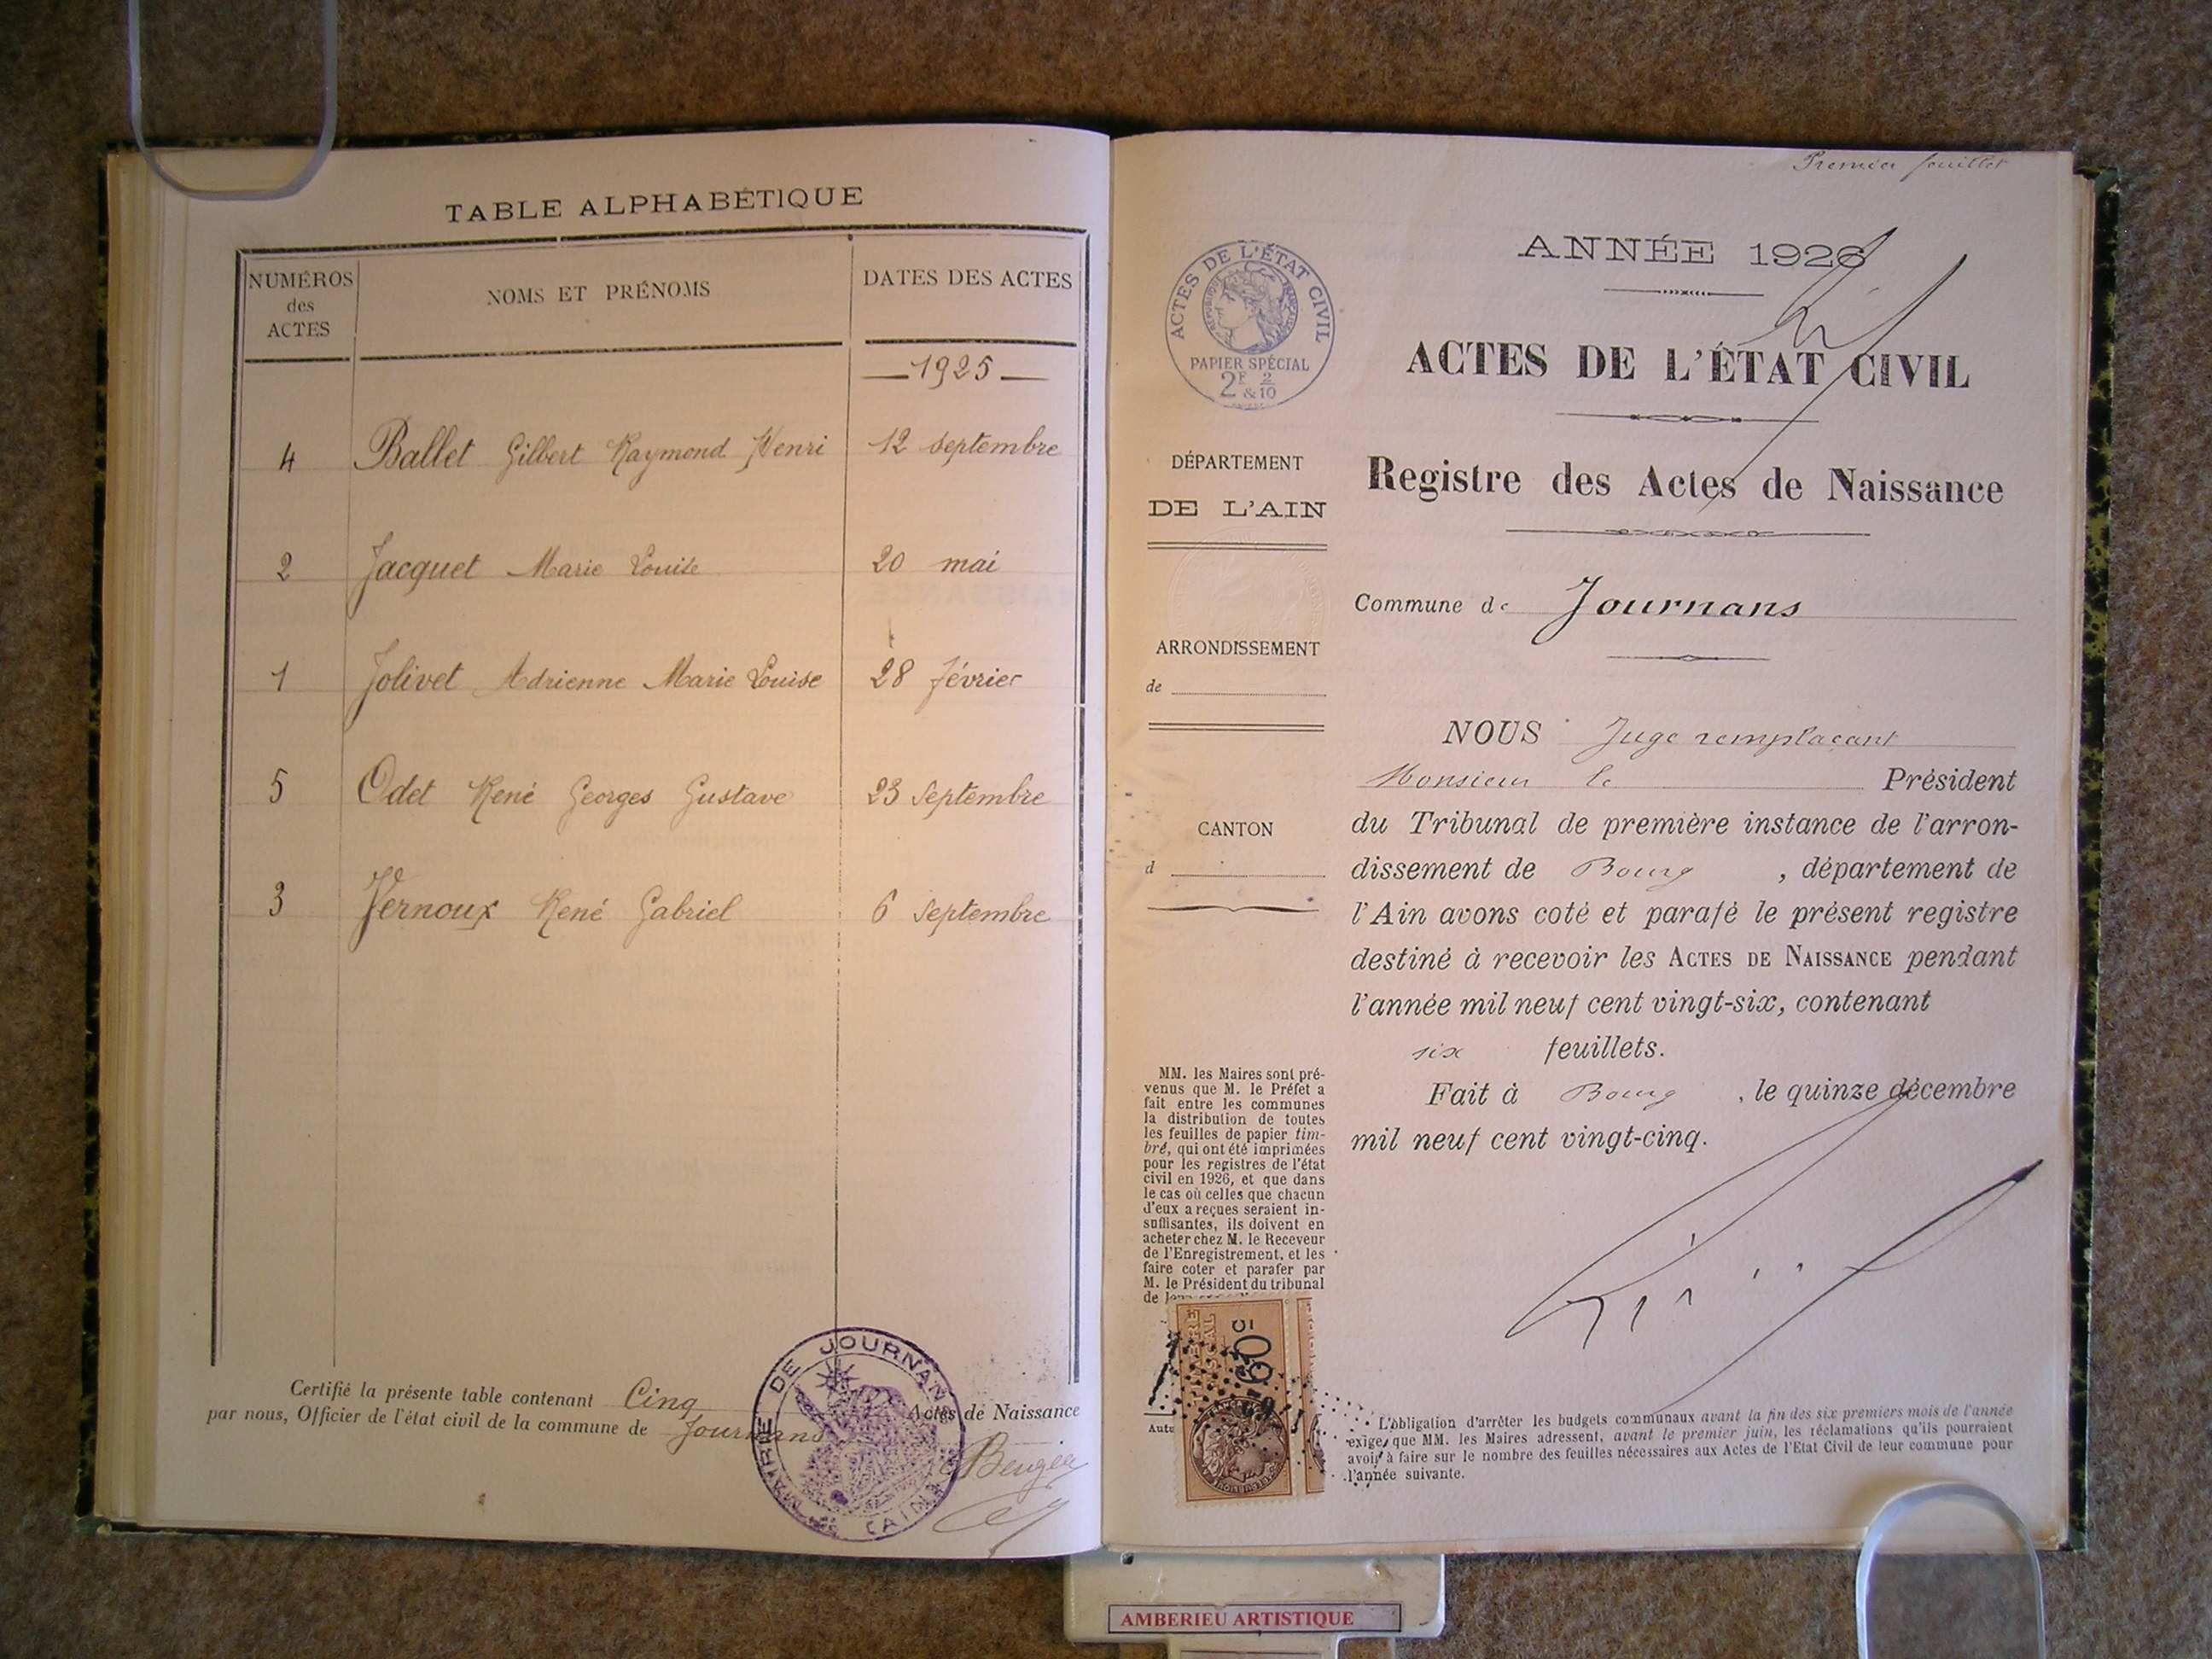 TABLE ALPHABÉTIQUE
NUMÉROS
des
ACTES
NOMS ET PRÉNOMS
DATES DES ACTES
1925
4 Ballet Gilbert Raymond Henri 12 septembre
2 Jacquet Marie Louise 20 mai
1 Jolivet Adrienne Marie Louise 28 février
5 Odet René Georges Gustave 23 septembre
3 Vernoux René Gabriel 6 septembre
Certifié la présente table contenant Cinq Actes de Naissance
par nous, Officier de l'état civil de la commune de Journans
MAIRIE DE JOURNANS
(AIN)
Premier feuillet
ACTES DE L'ÉTAT CIVIL
PAPIER SPÉCIAL
2F 2
&10
DÉPARTEMENT
DE L'AIN
ARRONDISSEMENT
de
CANTON
d
MM. les Maires sont pré-
venus que M. le Préfet a
fait entre les communes
la distribution de toutes
les feuilles de papier tim-
bré, qui ont été imprimées
pour les registres de l'état
civil en 1926, et que dans
le cas où celles que chacun
d'eux a reçues seraient in-
suffisantes, ils doivent en
acheter chez M. le Receveur
de l'Enregistrement, et les
faire coter et parafer par
M. le Président du tribunal
de
60 C
ANNÉE 1926
ACTES DE L'ÉTAT CIVIL
Registre des Actes de Naissance
Commune de Journans
NOUS Juge remplaçant
Monsieur le Président
du Tribunal de première instance de l'arron-
dissement de Bourg , département de
l'Ain avons coté et parafé le présent registre
destiné à recevoir les ACTES DE NAISSANCE pendant
l'année mil neuf cent vingt-six, contenant
six feuillets.
Fait à Bourg , le quinze décembre
mil neuf cent vingt-cinq.
L'obligation d'arrêter les budgets communaux avant la fin des six premiers mois de l'année
exige que MM. les Maires adressent, avant le premier juin, les réclamations qu'ils pourraient
avoir à faire sur le nombre des feuilles nécessaires aux Actes de l'Etat Civil de leur commune pour
l'année suivante.
AMBERIEU ARTISTIQUE